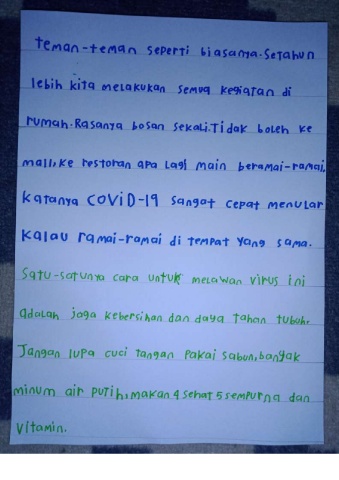 teman-teman seperti biasanya.Setahun
lebih kita melakukan semua kegiatan di
rumah.Rasanya bosan sekali.Tidak boleh ke
mall,ke restoran apa lagi main beramai-ramai,
Katanya COVID-19 sangat cepat menular
kalau ramai-ramai di tempat yang sama.
Satu-satunya cara untuk melawan virus ini
adalah jaga kebersihan dan daya tahan tubuh.
Jangan lupa cuci tangan pakai sabun,banyak
minum air putih,makan 4 sehat 5 sempurna dan
vitamin.